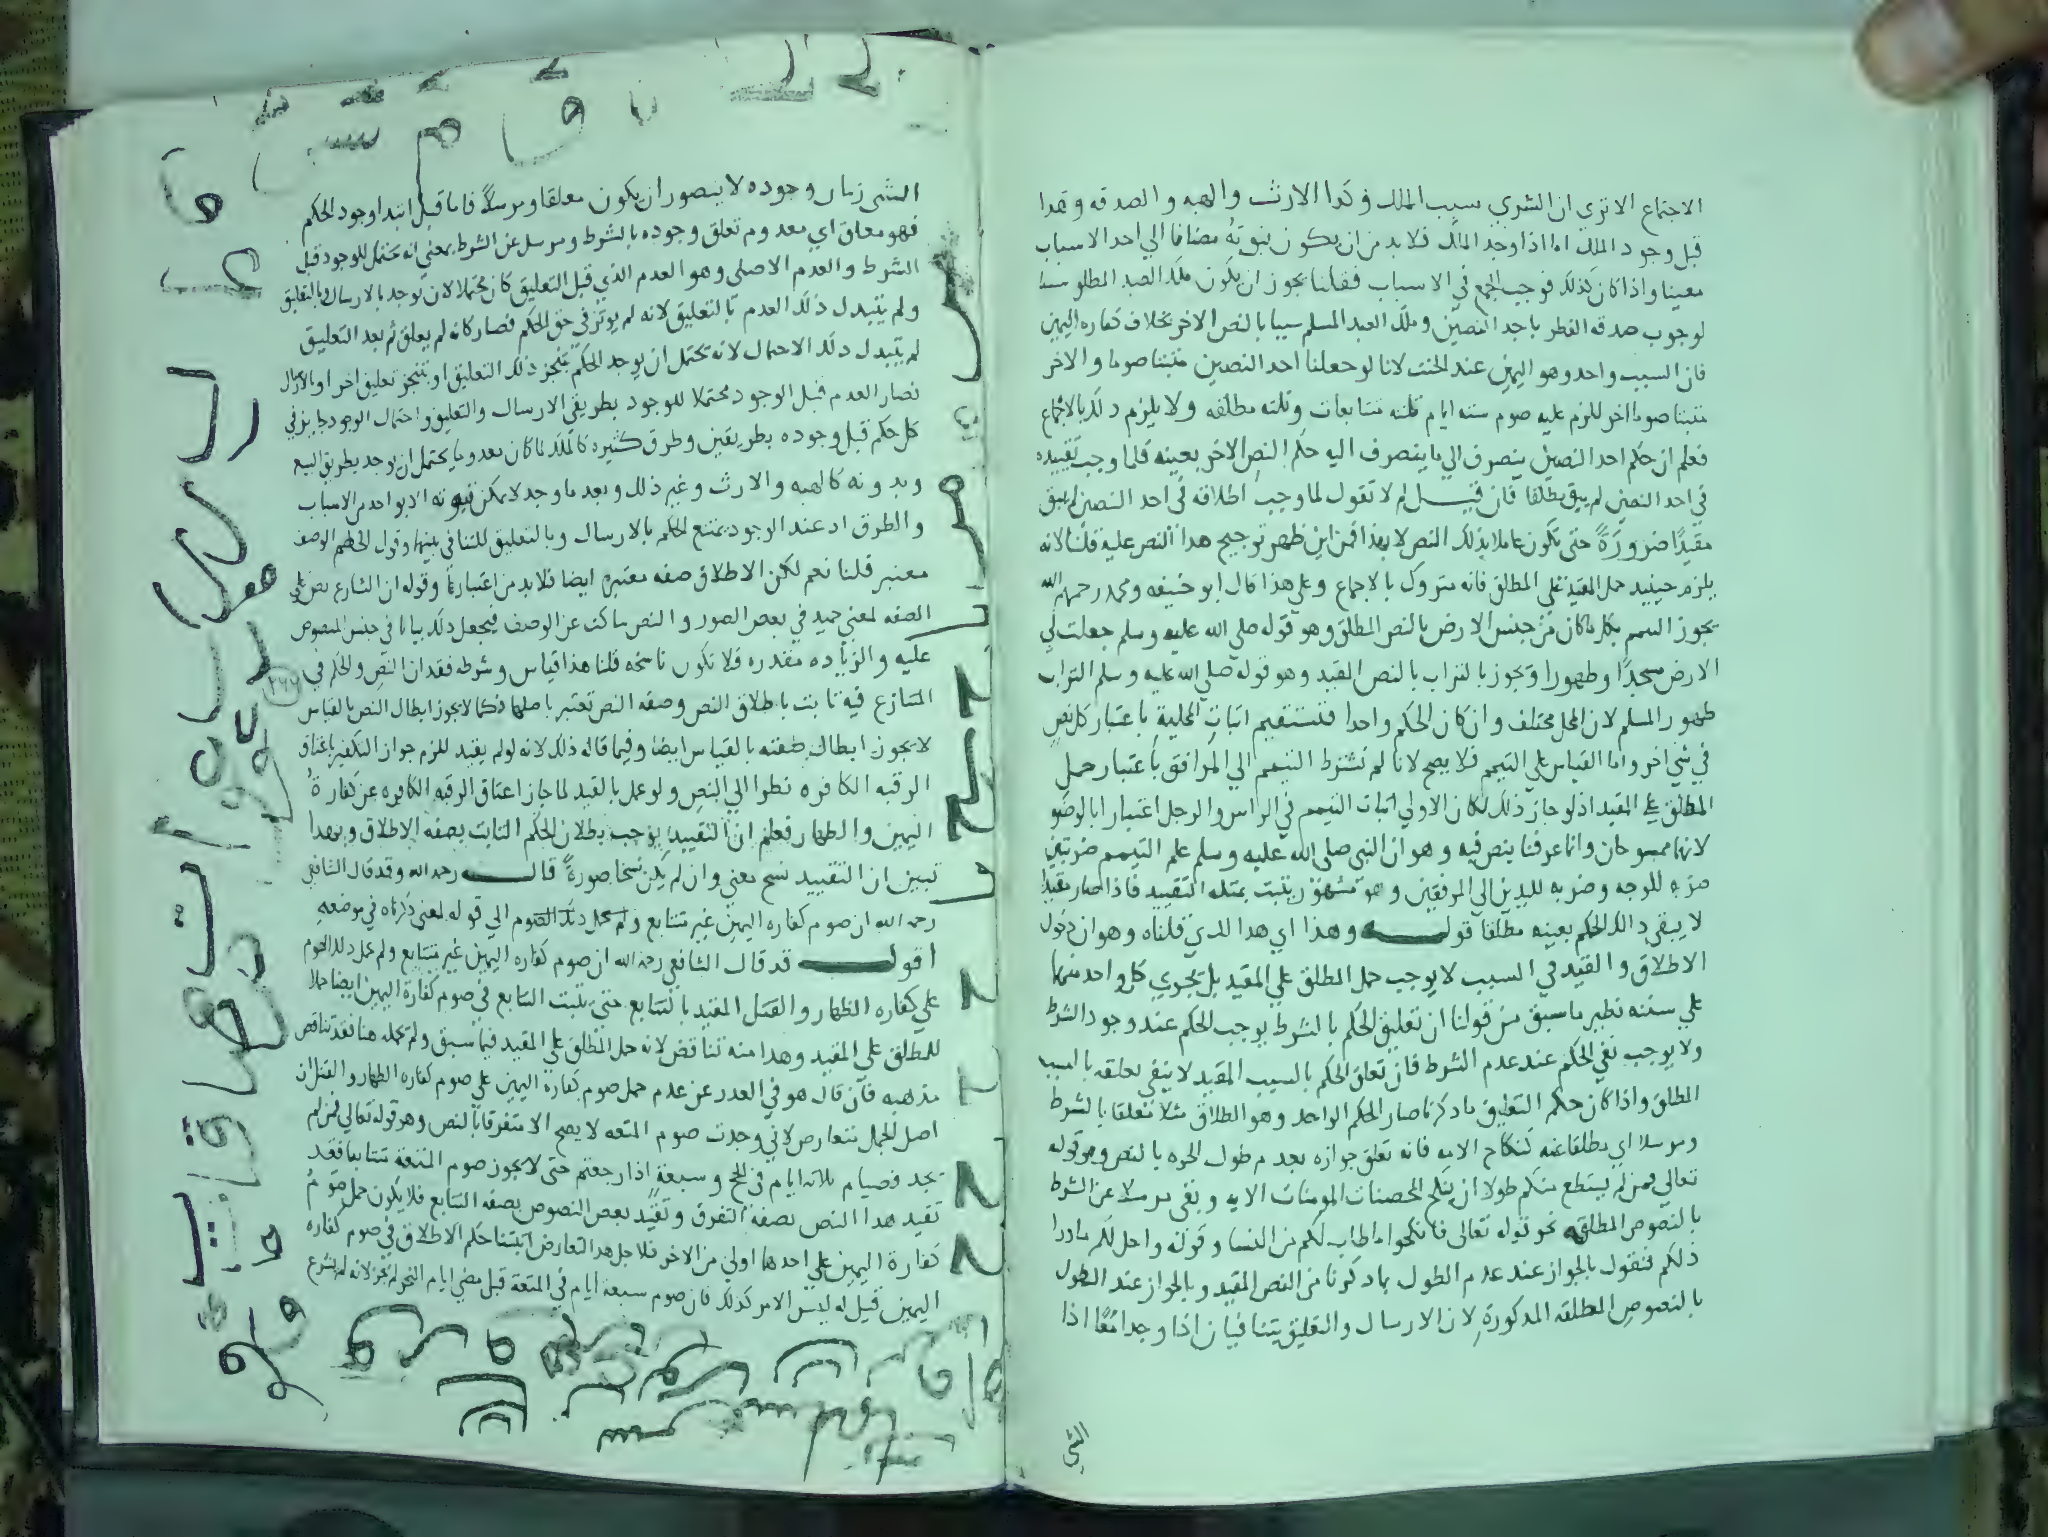 الاجتماع الا تري ان الشري سبب الملك وكذا الارث والهبه والصدقه وهذا
قبل وجود الملك اما اذا وجد الملك فلا بد من ان يكون ثبوته مضافا الي احد الاسباب
معينا واذا كان كذلك فوجب الجمع في الاسباب فقلنا يجوز ان يكون ملك العبد المطلق سببا
لوجوب صدقه الفطر باحد النصين وملك العبد المسلم سببا بالنص الاخر بخلاف كفاره اليمين
فان السبب واحد وهو اليمين عند الحنث لانا لو جعلنا احد النصين مثبتا صوما والاخر
مثبتا صوما اخر للزم عليه صوم سته ايام ثلثه متتابعات وثلثه مطلقه ولا يلزم ذلك بالاجماع
فعلم ان حكم احد النصين ينصرف الي ما ينصرف اليه حكم النص الاخر بعينه فلما وجب تقييده
في احد النصين لم يبق مطلقا فان قيل لم لا تقول لما وجب اطلاقه في احد النصين لم يبق
مقيدا ضرورة حتى تكون عاملا بذلك النص لا بهذا فمن اين ظهر ترجيح هذا النص عليه قلنا لانه
يلزم حينيد حمل المقيد علي المطلق فانه متروك بالاجماع وعلي هذا قال ابو حنيفه ومحمد رحمهما الله
يجوز التيمم بكل ما كان من جنس الارض بالنص المطلق وهو قوله صلي الله عليه وسلم جعلت لي
الارض مسجدا وطهورا ويجوز بالتراب بالنص المقيد وهو قوله صلي الله عليه وسلم التراب
طهور المسلم لان المحل مختلف وان كان الحكم واحدا فتستقيم اثبات المحلية باعتبار كل نص
في شي اخر واما القياس علي التيمم فلا يصح لانا لم نشترط التيمم الي المرافق باعتبار حمل
المطلق علي المقيد اذ لو جاز ذلك لكان الاولي اثبات التيمم في الراس والرجل اعتبارا بالوضو
لانهما ممسوحان وانما عرفنا بنص فيه وهو ان النبي صلي الله عليه وسلم علم التيمم ضربتين
ضربه للوجه وضربه لليدين الي المرفقين وهو مشهور يثبت بمثله التقييد فاذا صار مقيدا
لا يبقي ذلك الحكم بعينه مطلقا قولـــه وهذا اي هذا الذي قلناه وهو ان دخول
الاطلاق والقيد في السبب لا يوجب حمل المطلق علي المقيد بل يجري كل واحد منهما
علي سننه نظير ما سبق من قولنا ان تعليق الحكم بالشرط يوجب الحكم عند وجود الشرط
ولا يوجب نفي الحكم عند عدم الشرط فان تعلق الحكم بالسبب المقيد لا ينفي تعلقه بالسبب
المطلق واذا كان حكم التعليق ما ذكرنا صار الحكم الواحد وهو الطلاق مثلا متعلقا بالشرط
ومرسلا اي مطلقا عنه كنكاح الامه فانه تعلق جوازه بعدم طول الحره بالنص وهو قوله
تعالي فمن لم يستطع منكم طولا ان ينكح المحصنات المومنات الايه وبقي مرسلا عن الشرط
بالنصوص المطلقه نحو قوله تعالى فانكحوا ما طاب لكم من النسا وقوله واحل لكم ما ورا
ذلكم فنقول بالجواز عند عدم الطول بما ذكرنا من النص المقيد وبالجواز عند الطول
بالنصوص المطلقه المذكورة لان الارسال والتعليق يتنافيان اذا وجدا معا اذا
الشي
الشي زمان وجوده لا يتصور ان يكون معلقا ومرسلا فاما قبل ابتدا وجود الحكم
فهو معلق اي معدوم تعلق وجوده بالشرط ومرسل عن الشرط بمعنى انه يحتمل الوجود قبل
الشرط والعدم الاصلي وهو العدم الذي قبل التعليق كان محتملا لان يوجد بالارسال وبالتعليق
ولم يتبدل ذلك العدم بالتعليق لانه لم يوثر في حق الحكم فصار كانه لم يعلق ثم بعد التعليق
لم يتبدل ذلك الاحتمال لانه يحتمل ان يوجد الحكم بتنجز ذلك التعليق او بتنجز تعليق اخر او بالارسال
فصار العدم قبل الوجود محتملا للوجود بطريقي الارسال والتعليق واحتمال الوجود جايز في
كل حكم قبل وجوده بطريقين وطرق كثيره كالملك لما كان معدوما يحتمل ان يوجد بطريق البيع
وبدونه كالهبه والارث وغير ذلك وبعد ما وجد لا يمكن ثبوته الا بواحد من الاسباب
والطرق اذ عند الوجود يمتنع الحكم بالارسال وبالتعليق للتنافي بينهما وقول الخصم الوصف
معتبر قلنا نعم لكن الاطلاق صفه معتبره ايضا فلا بد من اعتبارها وقوله ان الشارع نص علي
الصفه لمعني حميد في بعض الصور والنص ساكت عن الوصف فيجعل ذلك بيانا في جنس المنصوص
عليه والزياده مقدره فلا تكون ناسخه قلنا هذا قياس وشرطه فقدان النص والحكم في
المتنازع فيه ثابت باطلاق النص وصفه النص تعتبر باصلها فكما لا يجوز ابطال النص بالقياس
لا يجوز ابطال صفته بالقياس ايضا وفيما قاله ذلك لانه لو لم يقيد للزم جواز التكفير باعتاق
الرقبه الكافره نظرا الي النص ولو عمل بالقيد لما جاز اعتاق الرقبه الكافره عن كفارة
اليمين والظهار فعلم ان التقييد يوجب بطلان الحكم الثابت بصفه الاطلاق وبهذا
تبين ان التقييد نسخ معني وان لم يكن نسخا صورة قالـــ رحمه الله وقد قال الشافعي
رحمه الله ان صوم كفاره اليمين غير متتابع ولم يحمل ذلك الصوم الي قوله لمعنى ذكرناه في موضعه
اقولـــ قد قال الشافعي رحمه الله ان صوم كفاره اليمين غير متتابع ولم يحمل ذلك الصوم
علي كفاره الظهار والقتل المقيد بالتتابع حتى يثبت التتابع في صوم كفارة اليمين ايضا حملا
للمطلق علي المقيد وهذا منه تناقض لانه حمل المطلق علي المقيد فيما سبق ولم يحمله هنا فقد تناقض
مذهبه فان قال هو في العذر عن عدم حمل صوم كفارة اليمين علي صوم كفاره الظهار والقتل ان
اصل الحمل متعارض لاني وجدت صوم المتعه لا يصح الا متفرقا بالنص وهو قوله تعالي فمن لم
يجد فصيام ثلاثه ايام في الحج وسبعة اذا رجعتم حتى لا يجوز صوم المتعة متتابعا فقد
تقيد هذا النص بصفة التفرق وتقيد بعض النصوص بصفه التتابع فلا يكون حمل صوم
كفارة اليمين علي احدها اولي من الاخر فلاجل هذا التعارض اثبتنا حكم الاطلاق في صوم كفاره
اليمين قيل له ليس الامر كذلك فان صوم سبعة ايام في المتعة قبل مضي ايام النحر لم يجز لانه لم يشرع